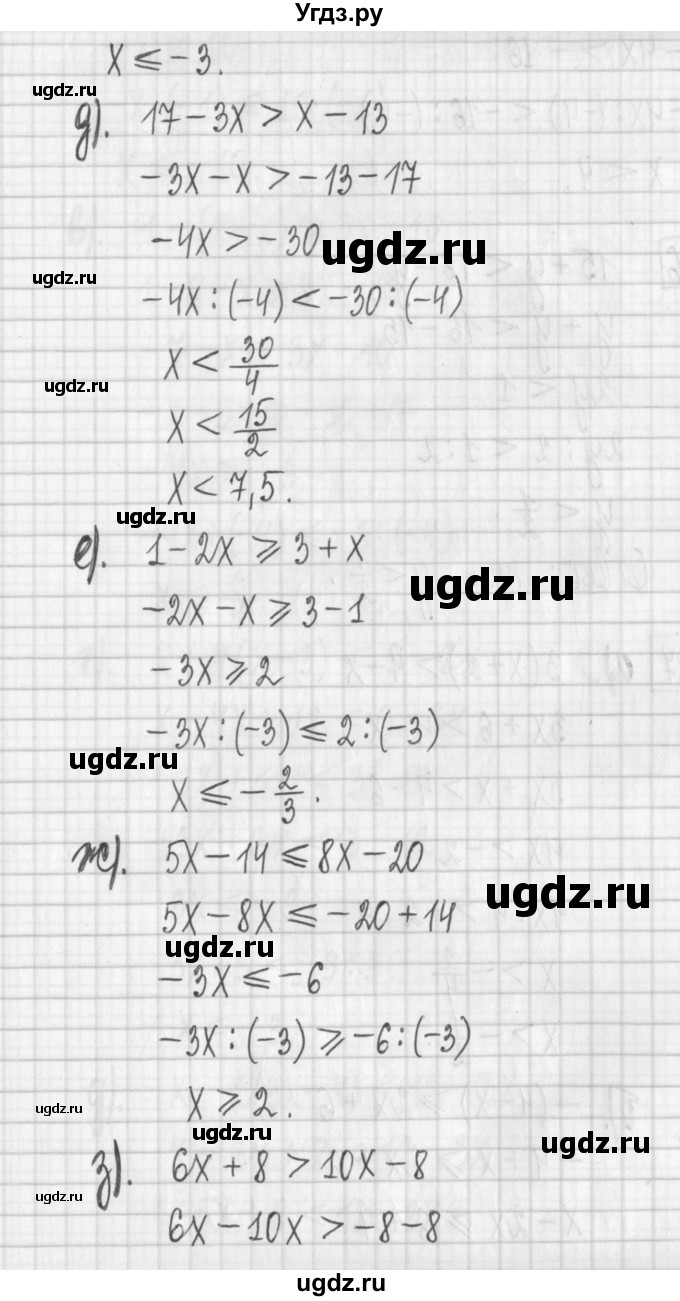 Угдз.ру
x ≤ -3.
ugdz.ru
д). 17 - 3x > x - 13
-3x - x > -13 - 17
-4x > -30
ugdz.ru
ugdz.ru
-4x : (-4) < -30 : (-4)
x < 30/4
ugdz.ru
x < 15/2
x < 7,5.
ugdz.ru
е). 1 - 2x ≥ 3 + x
ugdz.ru
-2x - x ≥ 3 - 1
-3x ≥ 2
-3x : (-3) ≤ 2 : (-3)
ugdz.ru
x ≤ -2/3.
ж). 5x - 14 ≤ 8x - 20
ugdz.ru
5x - 8x ≤ -20 + 14
ugdz.ru
-3x ≤ -6
-3x : (-3) ≥ -6 : (-3)
ugdz.ru
x ≥ 2.
ugdz.ru
ugdz.ru
з). 6x + 8 > 10x - 8
ugdz.ru
6x - 10x > -8 - 8
ugdz.ru